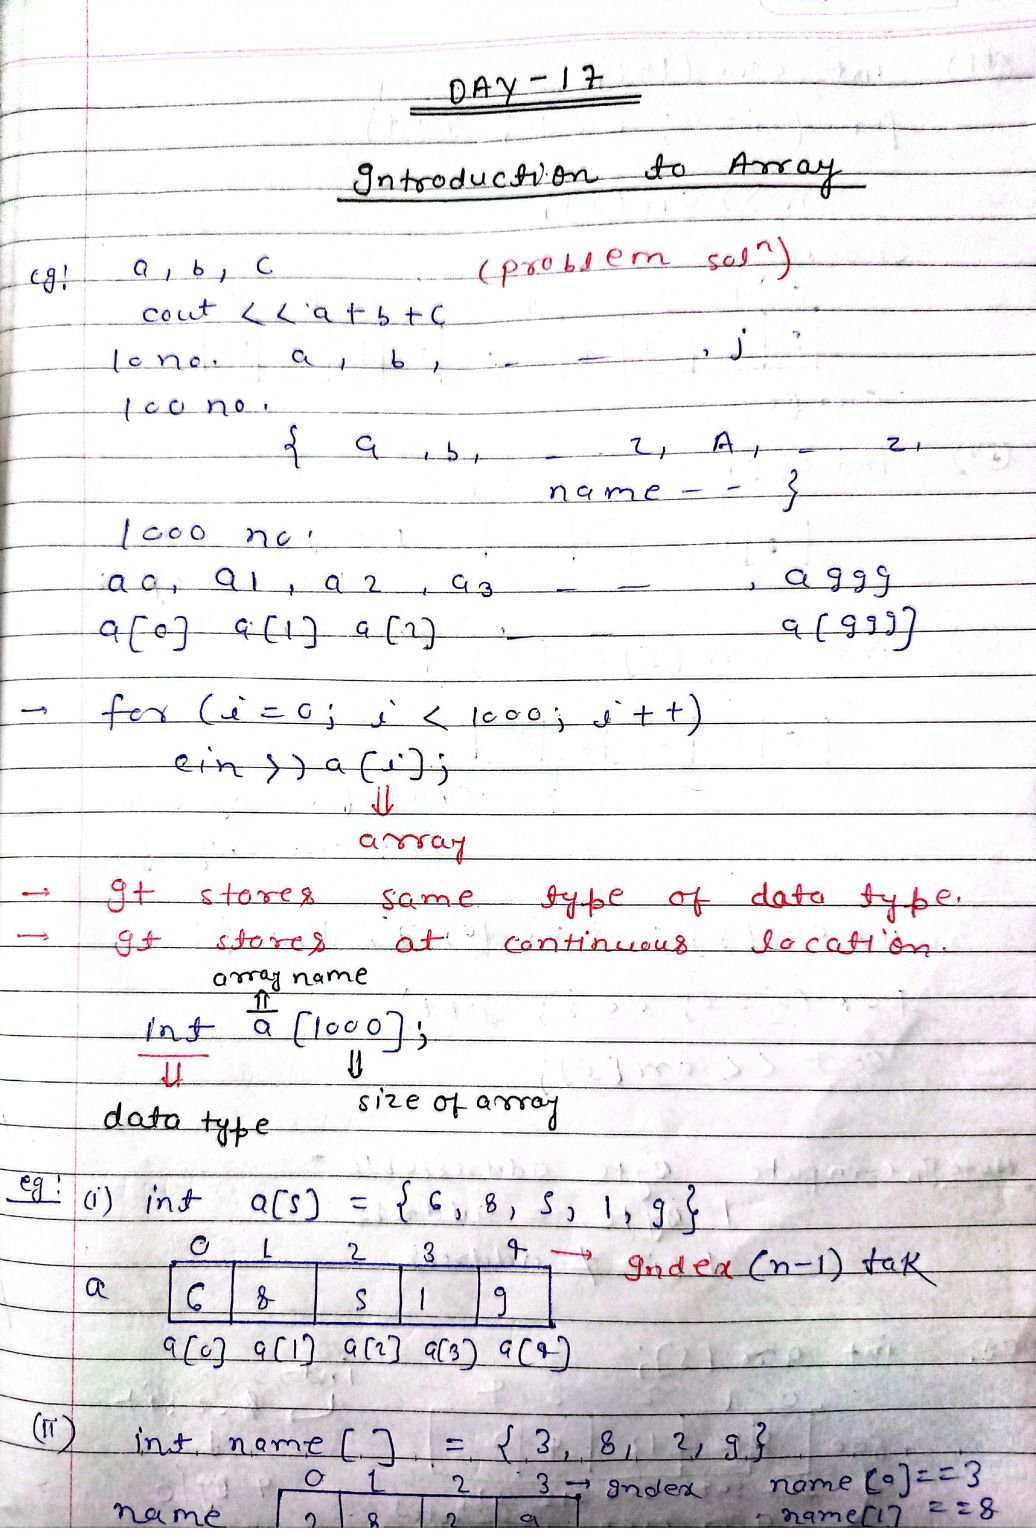 DAY-17
Introduction to Array
eg: a, b, c (problem solⁿ)
cout << a+b+c
10 no. a, b, - - , j
100 no.
{ a, b, - z, A, - z,
name - - }
1000 no.
a0, a1, a2, a3 - - , a999
a[0] a[1] a[2] - - a[999]
→ for (i=0; i < 1000; i++)
cin >> a[i];
⇓
array
→ It stores same type of data type.
→ It stores at continuous location.
array name
⇑
int a [1000];
⇓ ⇓
data type size of array
eg: (i) int a[5] = {6, 8, 5, 1, 9}
0 1 2 3 4 → Index (n-1) tak
a 6 8 5 1 9
a[0] a[1] a[2] a[3] a[4]
(ii) int name [ ] = {3, 8, 2, 9}
0 1 2 3 → Index name[0]==3
name 3 8 2 9 name[1] ==8